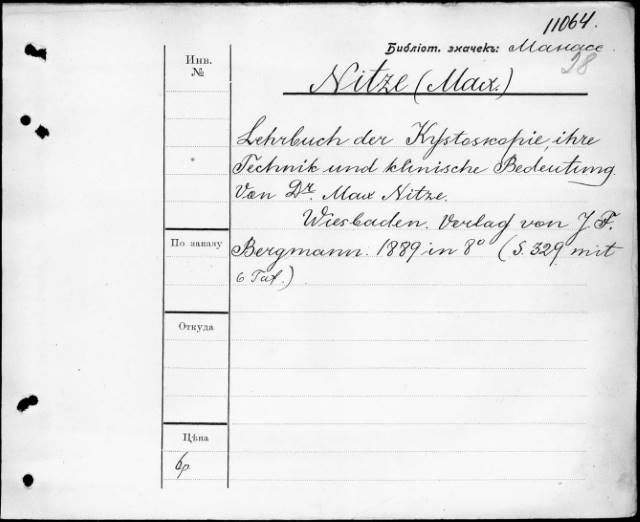 11064.
Библіот. значекъ: Манасс.
28
Инв.
№
Nitze (Max.)
Lehrbuch der Kystoskopie, ihre
Technik und klinische Bedeutung.
Von Dr. Max Nitze.
Wiesbaden. Verlag von J. F.
По заказу
Bergmann. 1889 in 8° (S. 329 mit
6 Taf.)
Откуда
Цѣна
6р